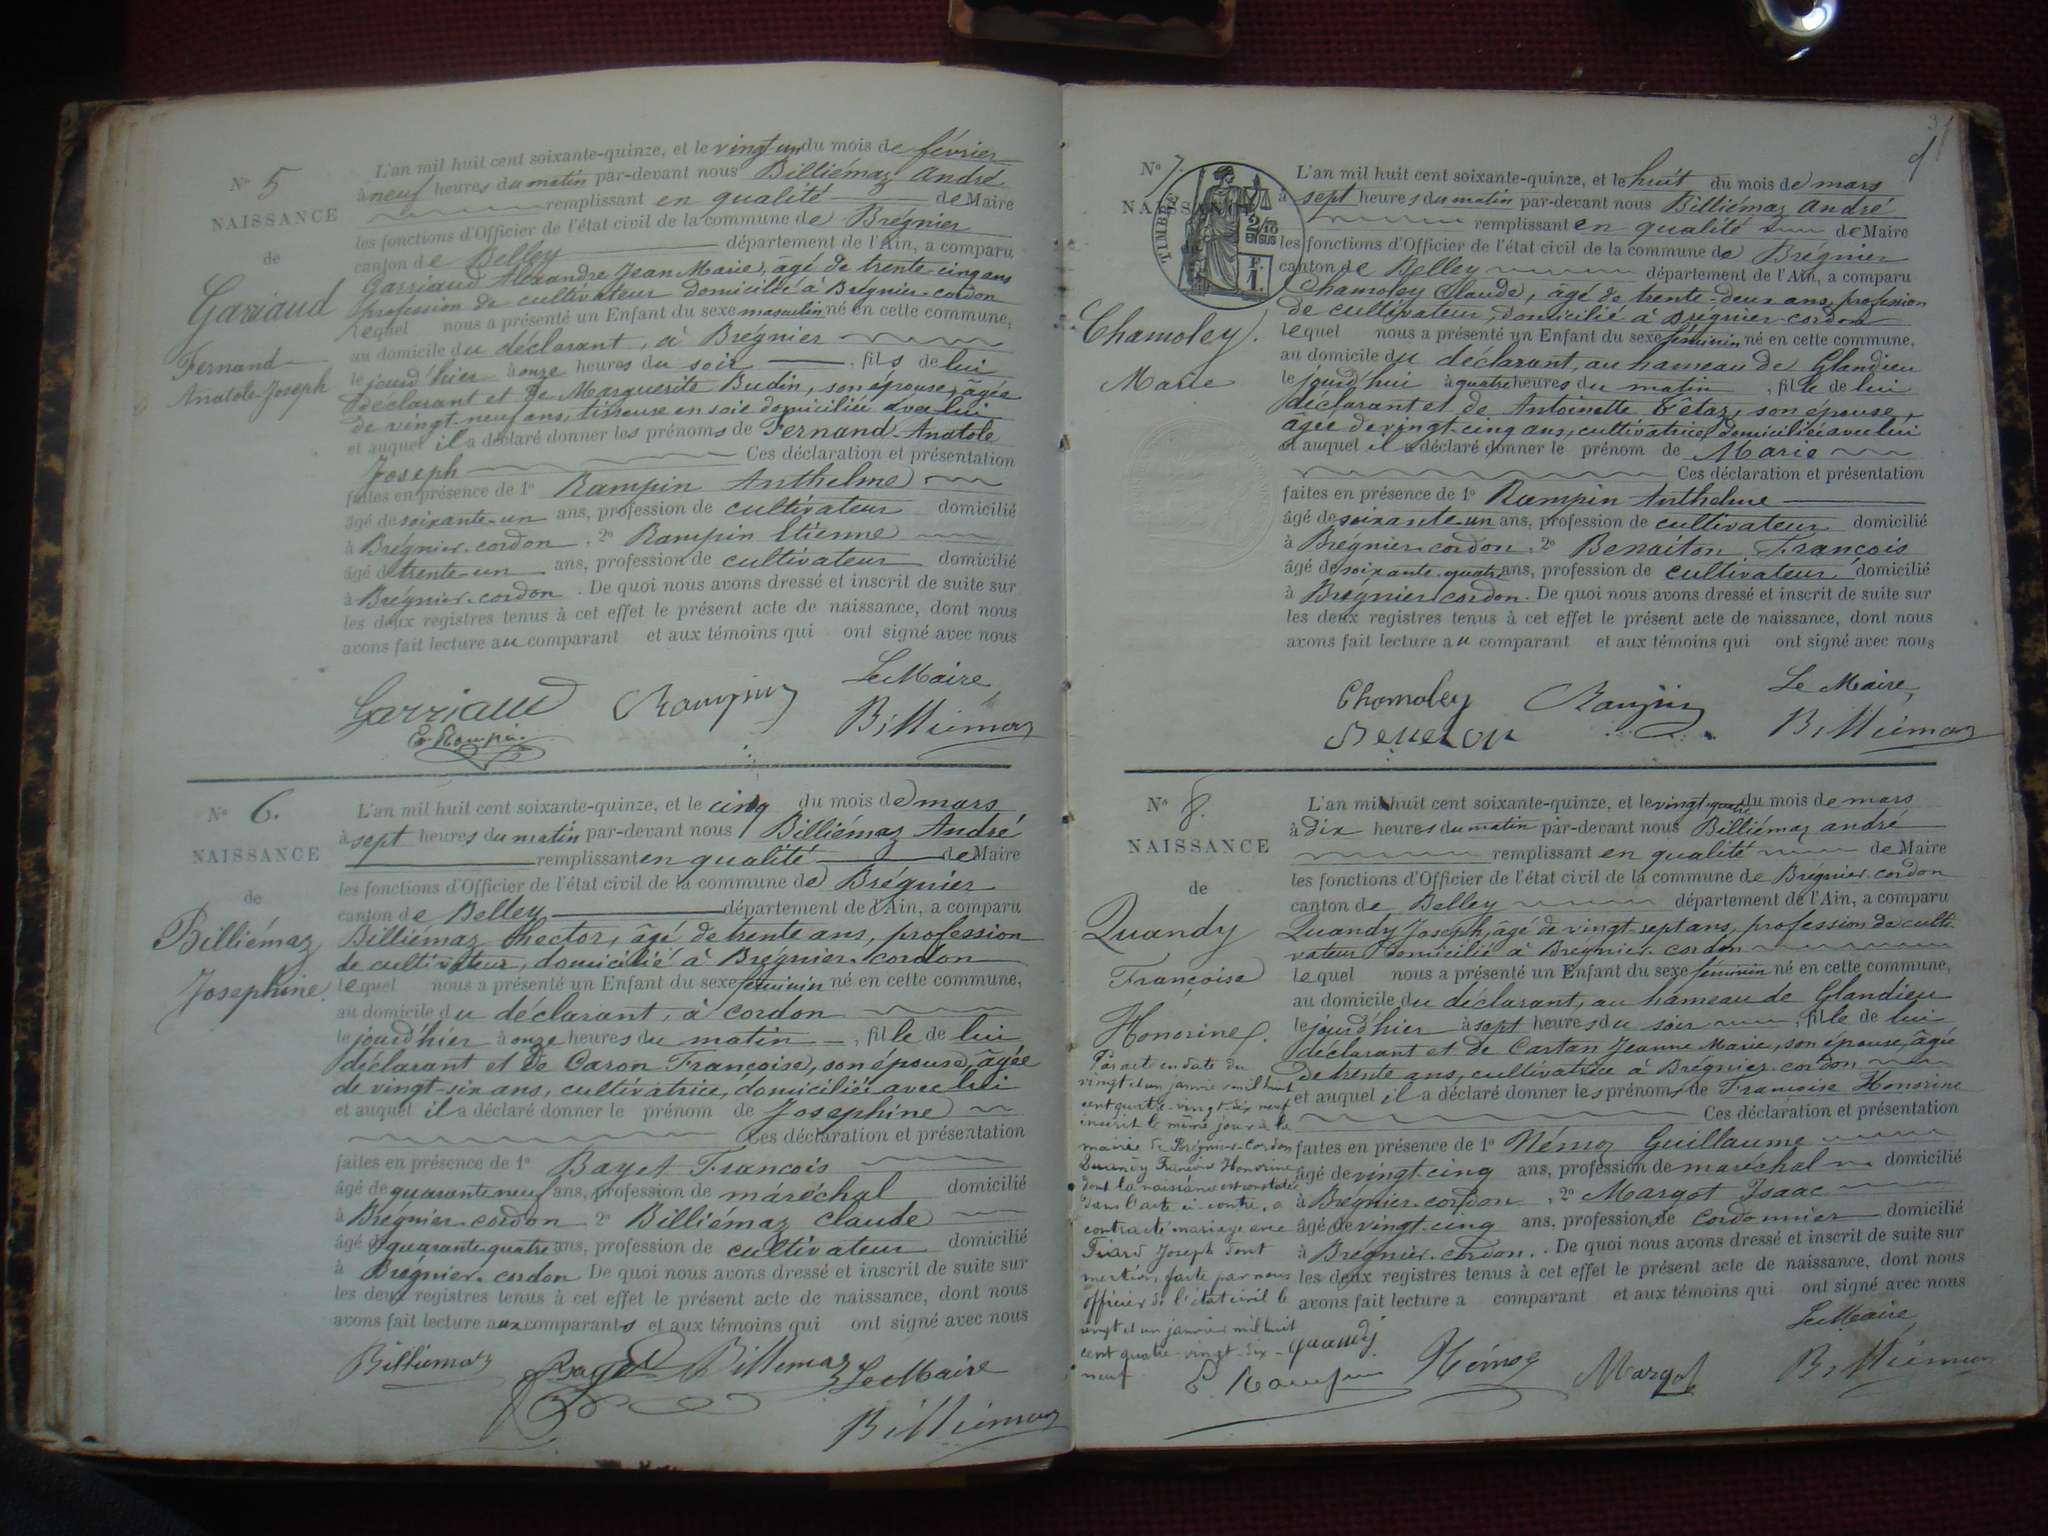 N° 5
NAISSANCE
de
Garriaud
Fernand
Anatole-Joseph
L'an mil huit cent soixante-quinze, et le vingt un du mois de février
à neuf heures du matin par-devant nous Billiémaz André
remplissant en qualité de Maire
les fonctions d'Officier de l'état civil de la commune de Brégnier
canton de Belley département de l'Ain, a comparu
Garriaud Alexandre Jean Marie, âgé de trente-cinq ans
profession de cultivateur domicilié à Brégnier-cordon
lequel nous a présenté un Enfant du sexe masculin né en cette commune,
au domicile du déclarant, à Brégnier
le jourd'hier à onze heures du soir, fils de lui
déclarant et de Marguerite Budin, son épouse, âgée
de vingt-neuf ans, tisseuse en soie domiciliée avec lui
et auquel il a déclaré donner les prénoms de Fernand-Anatole
Joseph Ces déclaration et présentation
faites en présence de 1° Rampin Anthelme
âgé de soixante-un ans, profession de cultivateur domicilié
à Brégnier-cordon, 2° Rampin Etienne
âgé de trente-un ans, profession de cultivateur domicilié
à Brégnier-cordon. De quoi nous avons dressé et inscrit de suite sur
les deux registres tenus à cet effet le présent acte de naissance, dont nous
avons fait lecture au comparant et aux témoins qui ont signé avec nous
Le Maire,
Garriaud Rampin Billiémaz
E. Rampin
N° 6.
NAISSANCE
de
Billiémaz
Josephine.
L'an mil huit cent soixante-quinze, et le cinq du mois de mars
à sept heures du matin par-devant nous Billiémaz André
remplissant en qualité de Maire
les fonctions d'Officier de l'état civil de la commune de Brégnier
canton de Belley département de l'Ain, a comparu
Billiémaz hector, âgé de trente ans, profession
de cultivateur, domicilié à Brégnier-cordon
lequel nous a présenté un Enfant du sexe feminin né en cette commune,
au domicile du déclarant, à cordon
le jourd'hier à onze heures du matin, fille de lui
déclarant et de Caron Françoise, son épouse, âgée
de vingt-six ans, cultivatrice, domiciliée avec lui
et auquel il a déclaré donner le prénom de Josephine
Ces déclaration et présentation
faites en présence de 1° Bayet François
âgé de quarante neuf ans, profession de maréchal domicilié
à Brégnier-cordon 2° Billiémaz claude
âgé de quarante-quatre ans, profession de cultivateur domicilié
à Brégnier-cordon De quoi nous avons dressé et inscrit de suite sur
les deux registres tenus à cet effet le présent acte de naissance, dont nous
avons fait lecture aux comparants et aux témoins qui ont signé avec nous
Billiemaz Bayet Billemaz Le Maire
Billiémaz
N° 7.
NAISSANCE
TIMBRE
2/10
EN SUS
F.
1.
Chamoley
Marie
L'an mil huit cent soixante-quinze, et le huit du mois de mars
à sept heures du matin par-devant nous Billiémaz André
remplissant en qualité de Maire
les fonctions d'Officier de l'état civil de la commune de Brégnier
canton de Belley département de l'Ain, a comparu
Chamoley Claude, âgé de trente-deux ans, profession
de cultivateur, domicilié à Brégnier-cordon
lequel nous a présenté un Enfant du sexe féminin né en cette commune,
au domicile du déclarant, au hameau de Glandieu
le jourd'hui à quatre heures du matin, fille de lui
déclarant et de Antoinette Tétaz, son épouse,
âgée de vingt-cinq ans, cultivatrice, domiciliée avec lui
et auquel il a déclaré donner le prénom de Marie
Ces déclaration et présentation
faites en présence de 1° Rampin Anthelme
âgé de soixante-un ans, profession de cultivateur domicilié
à Brégnier-cordon, 2° Benaiton François
âgé de soixante-quatre ans, profession de cultivateur domicilié
à Brégnier-cordon. De quoi nous avons dressé et inscrit de suite sur
les deux registres tenus à cet effet le présent acte de naissance, dont nous
avons fait lecture au comparant et aux témoins qui ont signé avec nous
Le Maire,
Chamoley Rampin Billiémaz
N° 8.
NAISSANCE
de
Quandy
Françoise
Honorine.
L'an mil huit cent soixante-quinze, et le vingt-quatre du mois de mars
à dix heures du matin par-devant nous Billiémaz andré
remplissant en qualité de Maire
les fonctions d'Officier de l'état civil de la commune de Brégnier-cordon
canton de Belley département de l'Ain, a comparu
Quandy Joseph, âgé de vingt-sept ans, profession de culti-
vateur domicilié à Brégnier-cordon
lequel nous a présenté un Enfant du sexe féminin né en cette commune,
au domicile du déclarant, au hameau de Glandieu
le jourd'hier à sept heures du soir, fille de lui
déclarant et de Cartan Jeanne Marie, son épouse, âgée
de trente ans, cultivatrice à Brégnier-cordon
et auquel il a déclaré donner les prénoms de Françoise Honorine
Ces déclaration et présentation
faites en présence de 1° Némoz Guillaume
âgé de vingt-cinq ans, profession de maréchal domicilié
à Brégnier-cordon, 2° Margot Isaac
âgé de vingt-cinq ans, profession de cordonnier domicilié
à Brégnier-cordon. De quoi nous avons dressé et inscrit de suite sur
les deux registres tenus à cet effet le présent acte de naissance, dont nous
avons fait lecture a comparant et aux témoins qui ont signé avec nous
Par acte en date du
vingt et un janvier mil huit
cent quatre-vingt-dix neuf
inscrit le même jour à la
mairie de Brégnier-Cordon
Quandy Françoise Honorine
dont la naissance est constatée
dans l'acte ci-contre, a
contracté mariage avec
Piard Joseph dont
mention faite par nous
officier de l'état civil le
vingt et un janvier mil huit
cent quatre-vingt-dix-
neuf
Le Maire
Quandy
E. Rampin Némoz Margot Billiémaz